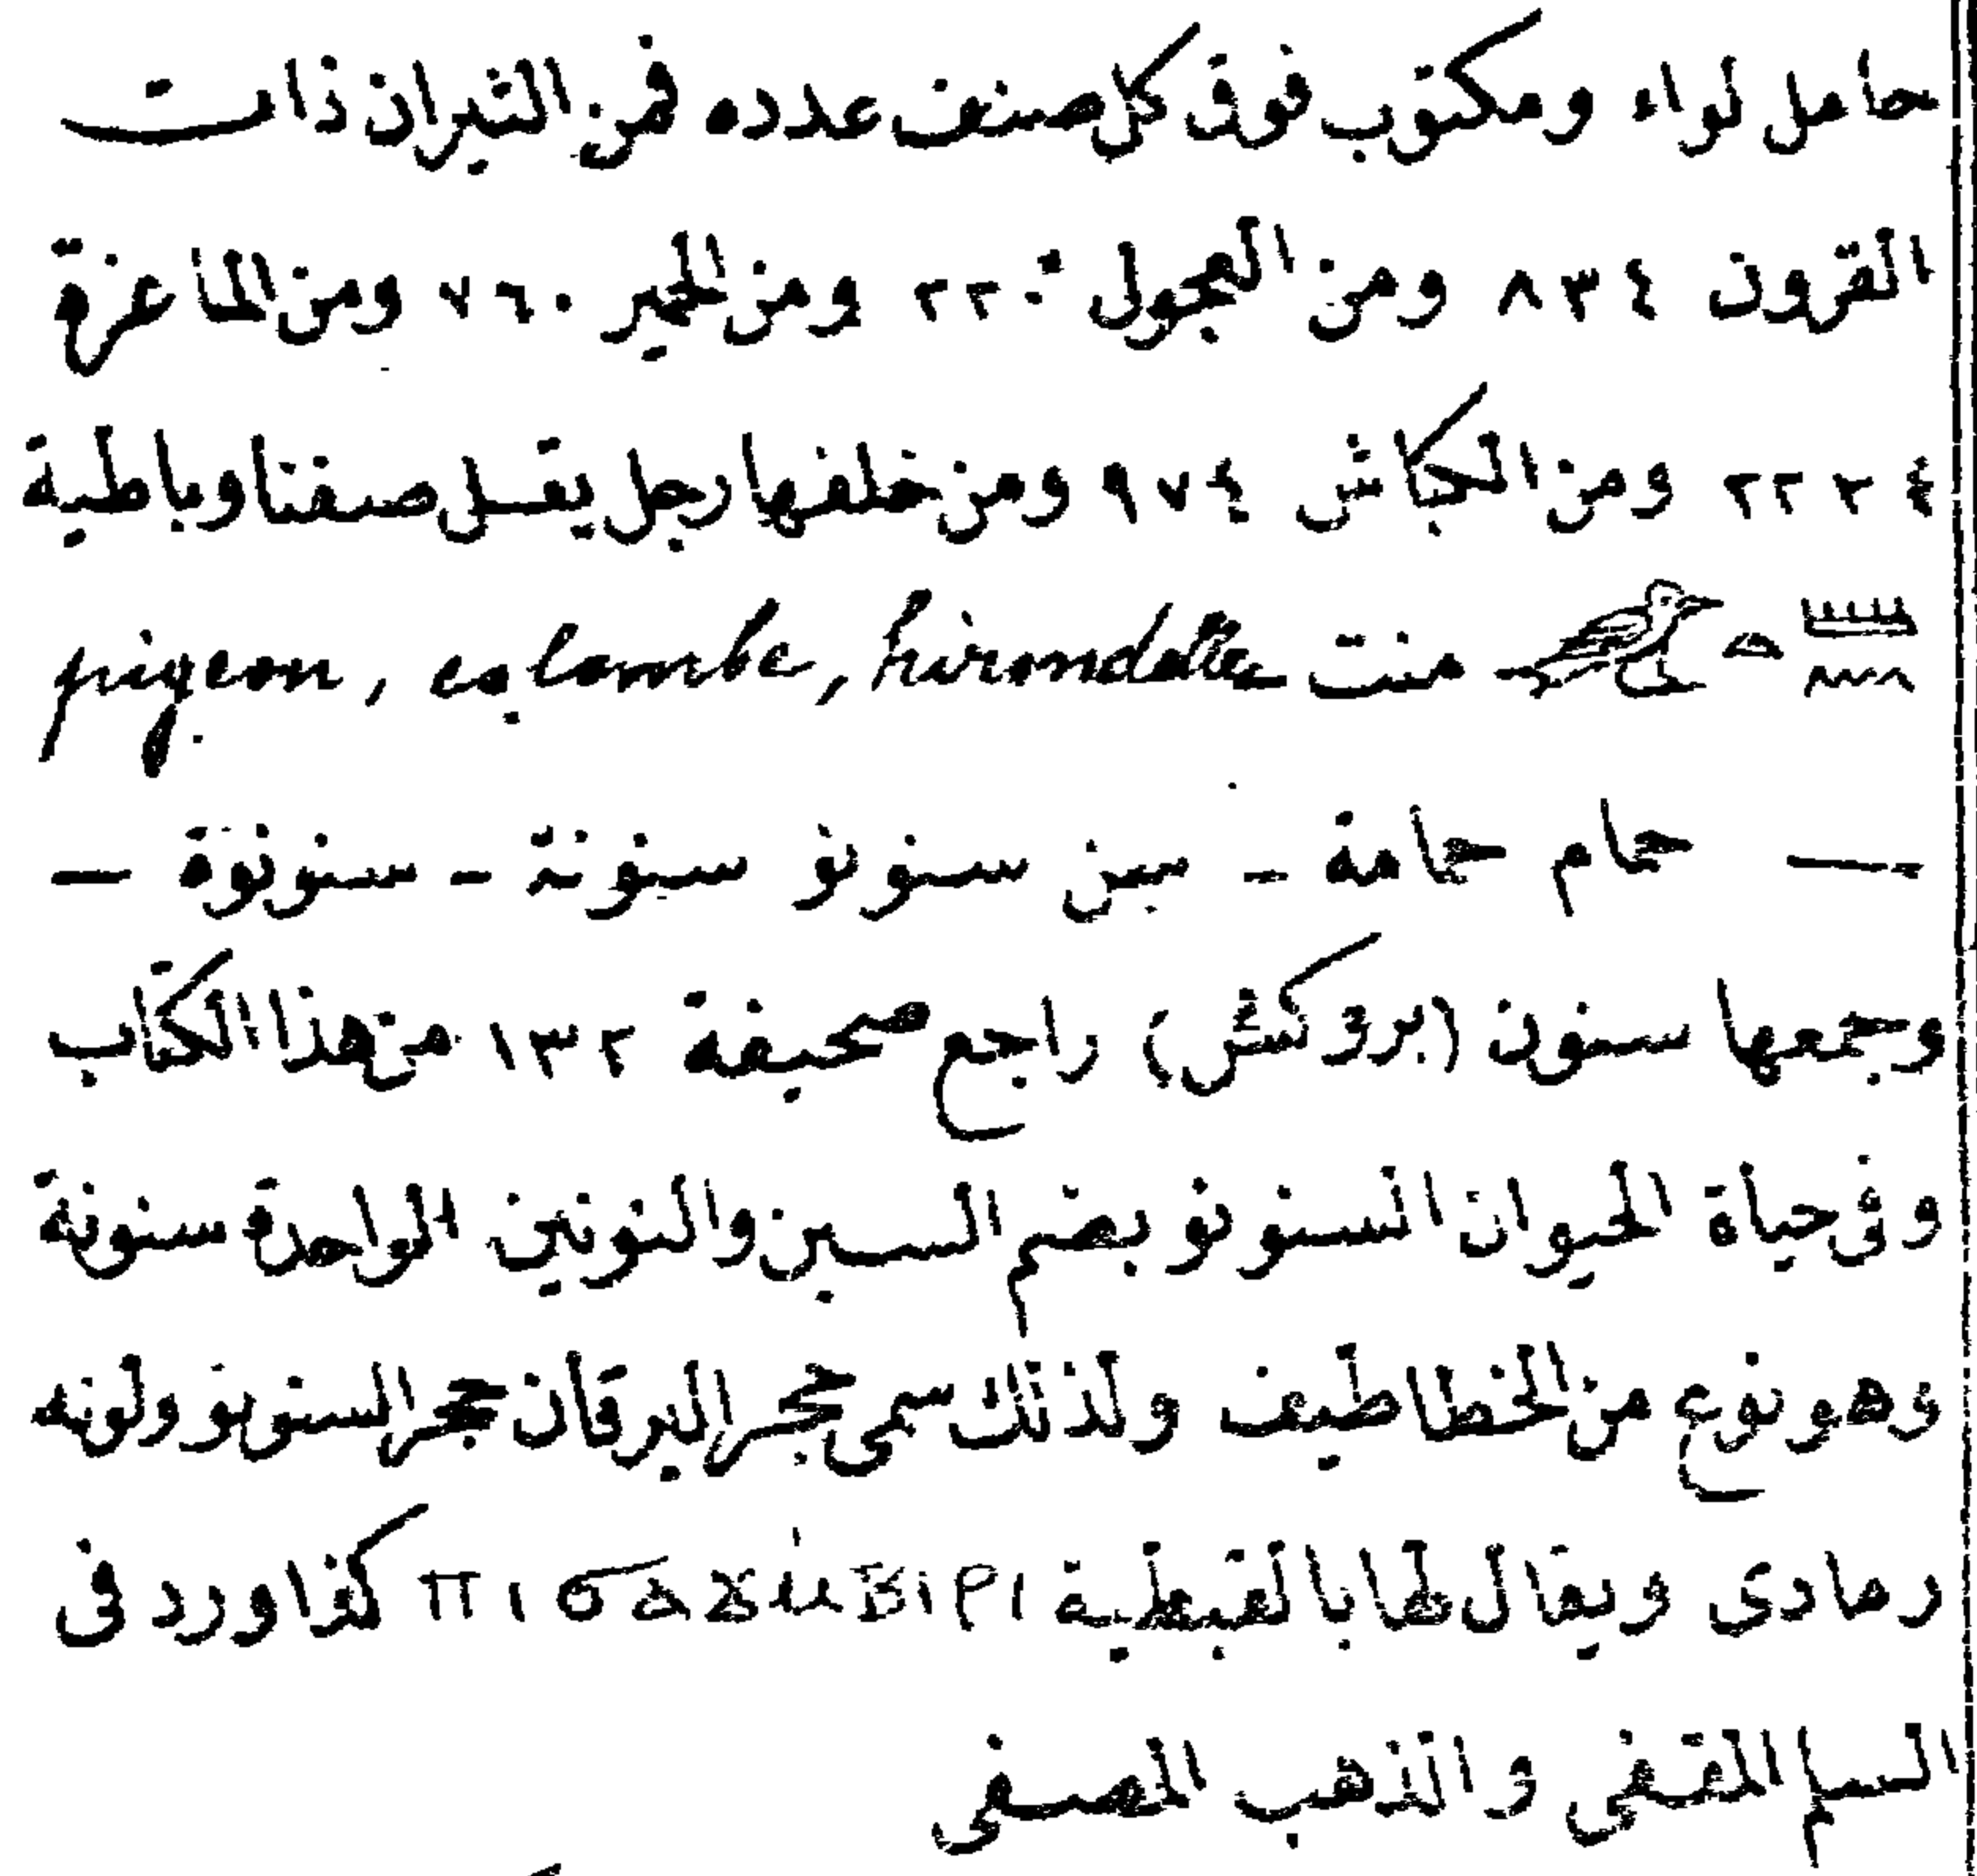 حامل لواء ومكتوب فوق كل صنف عدده فمن الثيران ذات
القرون ٨٣٤ ومن العجول ٢٢٠ ومن الحمير ٧٦٠ ومن الماعزة
٢٢٣٤ ومن الكباش ٩٧٤ ومن خلفها رجل يقــل صفتا وباطية
منت pigeon, colombe, hirondelle
— حمام حمامة - سنونو سنونة - سنونوة —
وجمعها سنون (بروكش) راجع صحيفة ١٣٢ من هذا الكتاب
وفى حياة الحيوان السنونو بضم السين والنونين الواحدة سنونة
وهو نوع من الخطاطيف ولذلك سمى حجر اليرقان حجر السنونو ولونه
رمادى ويقال لها بالقبطية كذا ورد فى
السلم المقفى والذهب المصفى